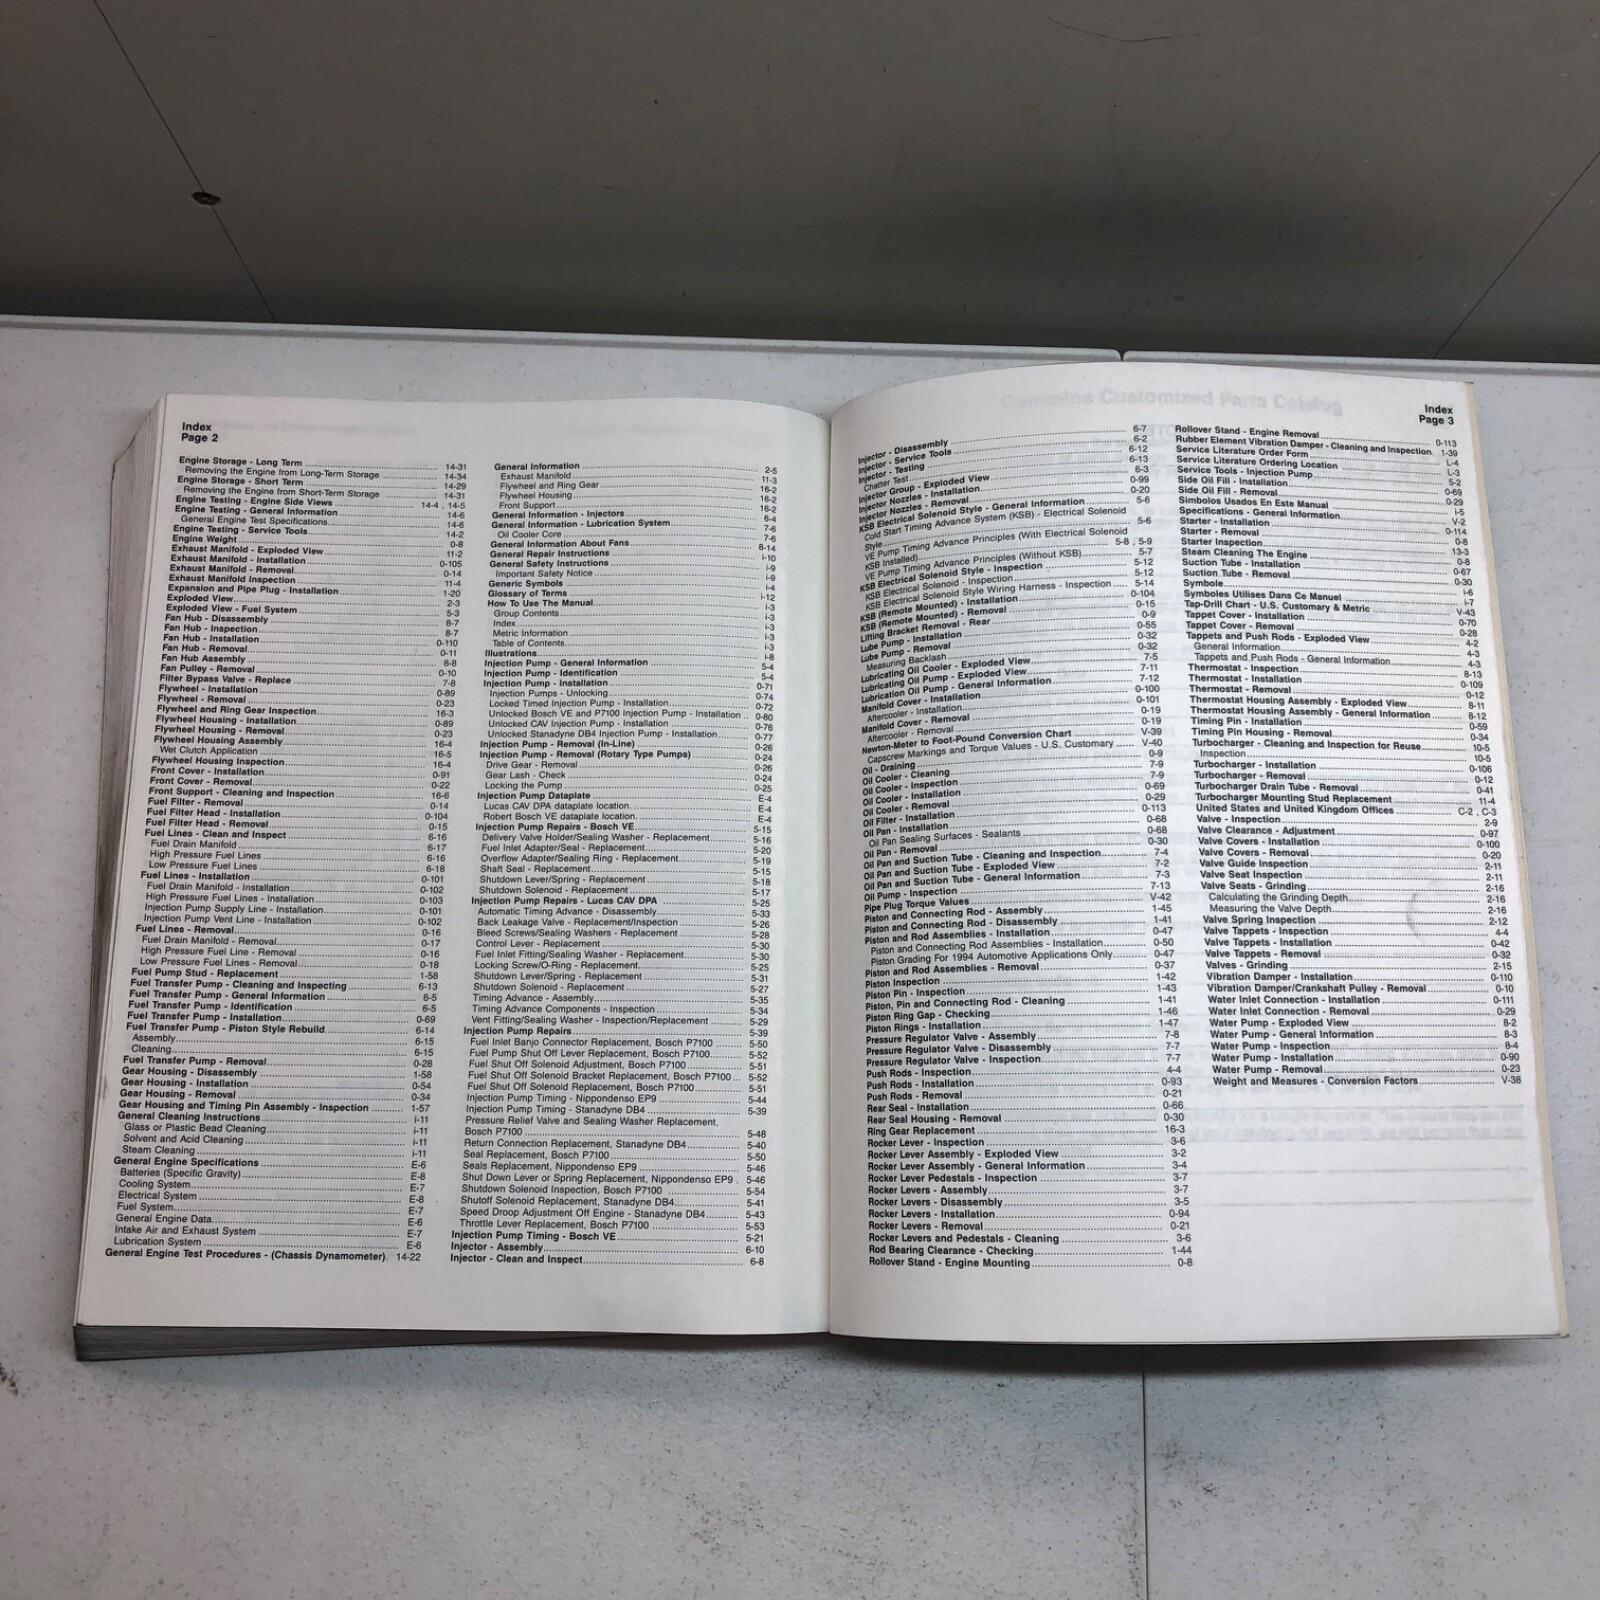 Index
Page 2
Engine Storage - Long Term 14-31
Removing the Engine from Long-Term Storage 14-34
Engine Storage - Short Term 14-29
Removing the Engine from Short-Term Storage 14-31
Engine Testing - Engine Side Views 14-4 , 14-5
Engine Testing - General Information 14-6
General Engine Test Specifications 14-6
Engine Testing - Service Tools 14-2
Engine Weight 0-8
Exhaust Manifold - Exploded View 11-2
Exhaust Manifold - Installation 0-105
Exhaust Manifold - Removal 0-14
Exhaust Manifold Inspection 11-4
Expansion and Pipe Plug - Installation 1-20
Exploded View 2-3
Exploded View - Fuel System 5-3
Fan Hub - Disassembly 8-7
Fan Hub - Inspection 8-7
Fan Hub - Installation 0-110
Fan Hub - Removal 0-11
Fan Hub Assembly 8-8
Fan Pulley - Removal 0-10
Filter Bypass Valve - Replace 7-8
Flywheel - Installation 0-89
Flywheel - Removal 0-23
Flywheel and Ring Gear Inspection 16-3
Flywheel Housing - Installation 0-89
Flywheel Housing - Removal 0-23
Flywheel Housing Assembly 16-4
Wet Clutch Application 16-5
Flywheel Housing Inspection 16-4
Front Cover - Installation 0-91
Front Cover - Removal 0-22
Front Support - Cleaning and Inspection 16-6
Fuel Filter - Removal 0-14
Fuel Filter Head - Installation 0-104
Fuel Filter Head - Removal 0-15
Fuel Lines - Clean and Inspect 6-16
Fuel Drain Manifold 6-17
High Pressure Fuel Lines 6-16
Low Pressure Fuel Lines 6-18
Fuel Lines - Installation 0-101
Fuel Drain Manifold - Installation 0-102
High Pressure Fuel Lines - Installation 0-103
Injection Pump Supply Line - Installation 0-101
Injection Pump Vent Line - Installation 0-102
Fuel Lines - Removal 0-16
Fuel Drain Manifold - Removal 0-17
High Pressure Fuel Line - Removal 0-16
Low Pressure Fuel Lines - Removal 0-18
Fuel Pump Stud - Replacement 1-58
Fuel Transfer Pump - Cleaning and Inspecting 6-13
Fuel Transfer Pump - General Information 6-5
Fuel Transfer Pump - Identification 6-5
Fuel Transfer Pump - Installation 0-69
Fuel Transfer Pump - Piston Style Rebuild 6-14
Assembly 6-15
Cleaning 6-15
Fuel Transfer Pump - Removal 0-28
Gear Housing - Disassembly 1-58
Gear Housing - Installation 0-54
Gear Housing - Removal 0-34
Gear Housing and Timing Pin Assembly - Inspection 1-57
General Cleaning Instructions i-11
Glass or Plastic Bead Cleaning i-11
Solvent and Acid Cleaning i-11
Steam Cleaning i-11
General Engine Specifications E-6
Batteries (Specific Gravity) E-8
Cooling System E-7
Electrical System E-8
Fuel System E-7
General Engine Data E-6
Intake Air and Exhaust System E-7
Lubrication System E-6
General Engine Test Procedures - (Chassis Dynamometer) 14-22
General Information 2-5
Exhaust Manifold 11-3
Flywheel and Ring Gear 16-2
Flywheel Housing 16-2
Front Support 16-2
General Information - Injectors 6-4
General Information - Lubrication System 7-6
Oil Cooler Core 7-6
General Information About Fans 8-14
General Repair Instructions i-10
General Safety Instructions i-9
Important Safety Notice i-9
Generic Symbols i-4
Glossary of Terms i-12
How To Use The Manual i-3
Group Contents i-3
Index i-3
Metric Information i-3
Table of Contents i-3
Illustrations i-8
Injection Pump - General Information 5-4
Injection Pump - Identification 5-4
Injection Pump - Installation 0-71
Injection Pumps - Unlocking 0-74
Locked Timed Injection Pump - Installation 0-72
Unlocked Bosch VE and P7100 Injection Pump - Installation 0-80
Unlocked CAV Injection Pump - Installation 0-76
Unlocked Stanadyne DB4 Injection Pump - Installation 0-77
Injection Pump - Removal (In-Line) 0-26
Injection Pump - Removal (Rotary Type Pumps) 0-24
Drive Gear - Removal 0-26
Gear Lash - Check 0-24
Locking the Pump 0-25
Injection Pump Dataplate E-4
Lucas CAV DPA dataplate location E-4
Robert Bosch VE dataplate location E-4
Injection Pump Repairs - Bosch VE 5-15
Delivery Valve Holder/Sealing Washer - Replacement 5-16
Fuel Inlet Adapter/Seal - Replacement 5-20
Overflow Adapter/Sealing Ring - Replacement 5-19
Shaft Seal - Replacement 5-15
Shutdown Lever/Spring - Replacement 5-18
Shutdown Solenoid - Replacement 5-17
Injection Pump Repairs - Lucas CAV DPA 5-25
Automatic Timing Advance - Disassembly 5-33
Back Leakage Valve - Replacement/Inspection 5-26
Bleed Screws/Sealing Washers - Replacement 5-28
Control Lever - Replacement 5-30
Fuel Inlet Fitting/Sealing Washer - Replacement 5-30
Locking Screw/O-Ring - Replacement 5-25
Shutdown Lever/Spring - Replacement 5-31
Shutdown Solenoid - Replacement 5-27
Timing Advance - Assembly 5-35
Timing Advance Components - Inspection 5-34
Vent Fitting/Sealing Washer - Inspection/Replacement 5-29
Injection Pump Repairs 5-39
Fuel Inlet Banjo Connector Replacement, Bosch P7100 5-50
Fuel Pump Shut Off Lever Replacement, Bosch P7100 5-52
Fuel Shut Off Solenoid Adjustment, Bosch P7100 5-51
Fuel Shut Off Solenoid Bracket Replacement, Bosch P7100 5-52
Fuel Shut Off Solenoid Replacement, Bosch P7100 5-51
Injection Pump Timing - Nippondenso EP9 5-44
Injection Pump Timing - Stanadyne DB4 5-39
Pressure Relief Valve and Sealing Washer Replacement,
Bosch P7100 5-48
Return Connection Replacement, Stanadyne DB4 5-40
Seal Replacement, Bosch P7100 5-50
Seals Replacement, Nippondenso EP9 5-46
Shut Down Lever or Spring Replacement, Nippondenso EP9 5-46
Shutdown Solenoid Inspection, Bosch P7100 5-54
Shutoff Solenoid Replacement, Stanadyne DB4 5-41
Speed Droop Adjustment Off Engine - Stanadyne DB4 5-43
Throttle Lever Replacement, Bosch P7100 5-53
Injection Pump Timing - Bosch VE 5-21
Injector - Assembly 6-10
Injector - Clean and Inspect 6-8
Cummins Customized Parts Catalog
Index
Page 3
Injector - Disassembly 6-7
Injector - Service Tools 6-2
Injector - Testing 6-12
Chatter Test 6-13
Injector Group - Exploded View 6-3
Injector Nozzles - Installation 0-99
Injector Nozzles - Removal 0-20
KSB Electrical Solenoid Style - General Information 5-6
Cold Start Timing Advance System (KSB) - Electrical Solenoid
Style 5-6
VE Pump Timing Advance Principles (With Electrical Solenoid
KSB Installed) 5-8 , 5-9
VE Pump Timing Advance Principles (Without KSB) 5-7
KSB Electrical Solenoid Style - Inspection 5-12
KSB Electrical Solenoid - Inspection 5-12
KSB Electrical Solenoid Style Wiring Harness - Inspection 5-14
KSB (Remote Mounted) - Installation 0-104
KSB (Remote Mounted) - Removal 0-15
Lifting Bracket Removal - Rear 0-9
Lube Pump - Installation 0-55
Lube Pump - Removal 0-32
Measuring Backlash 0-32
Lubricating Oil Cooler - Exploded View 7-5
Lubricating Oil Pump - Exploded View 7-11
Lubrication Oil Pump - General Information 7-12
Manifold Cover - Installation 0-100
Aftercooler - Installation 0-101
Manifold Cover - Removal 0-19
Aftercooler - Removal 0-19
Newton-Meter to Foot-Pound Conversion Chart V-39
Capscrew Markings and Torque Values - U.S. Customary V-40
Oil - Draining 0-9
Oil Cooler - Cleaning 7-9
Oil Cooler - Inspection 7-9
Oil Cooler - Installation 0-69
Oil Cooler - Removal 0-29
Oil Filter - Installation 0-113
Oil Pan - Installation 0-68
Oil Pan Sealing Surfaces - Sealants 0-68
Oil Pan - Removal 0-30
Oil Pan and Suction Tube - Cleaning and Inspection 7-4
Oil Pan and Suction Tube - Exploded View 7-2
Oil Pan and Suction Tube - General Information 7-3
Oil Pump - Inspection 7-13
Pipe Plug Torque Values V-42
Piston and Connecting Rod - Assembly 1-45
Piston and Connecting Rod - Disassembly 1-41
Piston and Rod Assemblies - Installation 0-47
Piston and Connecting Rod Assemblies - Installation 0-50
Piston Grading For 1994 Automotive Applications Only 0-47
Piston and Rod Assemblies - Removal 0-37
Piston Inspection 1-42
Piston Pin - Inspection 1-43
Piston, Pin and Connecting Rod - Cleaning 1-41
Piston Ring Gap - Checking 1-46
Piston Rings - Installation 1-47
Pressure Regulator Valve - Assembly 7-8
Pressure Regulator Valve - Disassembly 7-7
Pressure Regulator Valve - Inspection 7-7
Push Rods - Inspection 4-4
Push Rods - Installation 0-93
Push Rods - Removal 0-21
Rear Seal - Installation 0-66
Rear Seal Housing - Removal 0-30
Ring Gear Replacement 16-3
Rocker Lever - Inspection 3-6
Rocker Lever Assembly - Exploded View 3-2
Rocker Lever Assembly - General Information 3-4
Rocker Lever Pedestals - Inspection 3-7
Rocker Levers - Assembly 3-7
Rocker Levers - Disassembly 3-5
Rocker Levers - Installation 0-94
Rocker Levers - Removal 0-21
Rocker Levers and Pedestals - Cleaning 3-6
Rod Bearing Clearance - Checking 1-44
Rollover Stand - Engine Mounting 0-8
Rollover Stand - Engine Removal 0-113
Rubber Element Vibration Damper - Cleaning and Inspection 1-39
Service Literature Order Form L-4
Service Literature Ordering Location L-3
Service Tools - Injection Pump 5-2
Side Oil Fill - Installation 0-69
Side Oil Fill - Removal 0-29
Simbolos Usados En Este Manual i-5
Specifications - General Information V-2
Starter - Installation 0-114
Starter - Removal 0-8
Starter Inspection 13-3
Steam Cleaning The Engine 0-8
Suction Tube - Installation 0-67
Suction Tube - Removal 0-30
Symbole i-6
Symboles Utilises Dans Ce Manuel i-7
Tap-Drill Chart - U.S. Customary & Metric V-43
Tappet Cover - Installation 0-70
Tappet Cover - Removal 0-28
Tappets and Push Rods - Exploded View 4-2
General Information 4-3
Tappets and Push Rods - General Information 4-3
Thermostat - Inspection 8-13
Thermostat - Installation 0-109
Thermostat - Removal 0-12
Thermostat Housing Assembly - Exploded View 8-11
Thermostat Housing Assembly - General Information 8-12
Timing Pin - Installation 0-59
Timing Pin Housing - Removal 0-34
Turbocharger - Cleaning and Inspection for Reuse 10-5
Inspection 10-5
Turbocharger - Installation 0-106
Turbocharger - Removal 0-12
Turbocharger Drain Tube - Removal 0-41
Turbocharger Mounting Stud Replacement 11-4
United States and United Kingdom Offices C-2 , C-3
Valve - Inspection 2-9
Valve Clearance - Adjustment 0-97
Valve Covers - Installation 0-100
Valve Covers - Removal 0-20
Valve Guide Inspection 2-11
Valve Seat Inspection 2-11
Valve Seats - Grinding 2-16
Calculating the Grinding Depth 2-16
Measuring the Valve Depth 2-16
Valve Spring Inspection 2-12
Valve Tappets - Inspection 4-4
Valve Tappets - Installation 0-42
Valve Tappets - Removal 0-32
Valves - Grinding 2-15
Vibration Damper - Installation 0-110
Vibration Damper/Crankshaft Pulley - Removal 0-10
Water Inlet Connection - Installation 0-111
Water Inlet Connection - Removal 0-29
Water Pump - Exploded View 8-2
Water Pump - General Information 8-3
Water Pump - Inspection 8-4
Water Pump - Installation 0-90
Water Pump - Removal 0-23
Weight and Measures - Conversion Factors V-38